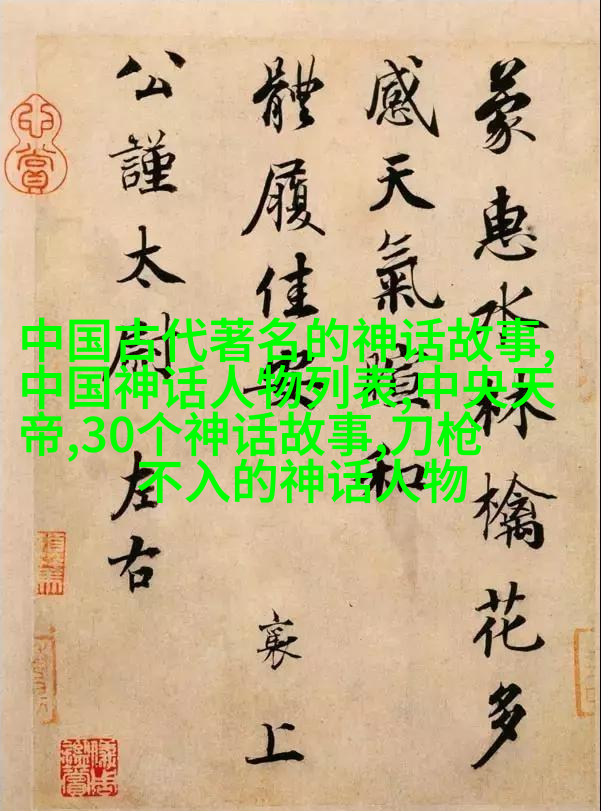 蒙惠水林檎花多
感天氣暄和
體履佳安 襄上
公謹太尉左右
中国古代著名的神话故事,
中国神话人物列表,中央天
帝,30个神话故事,刀枪
不入的神话人物